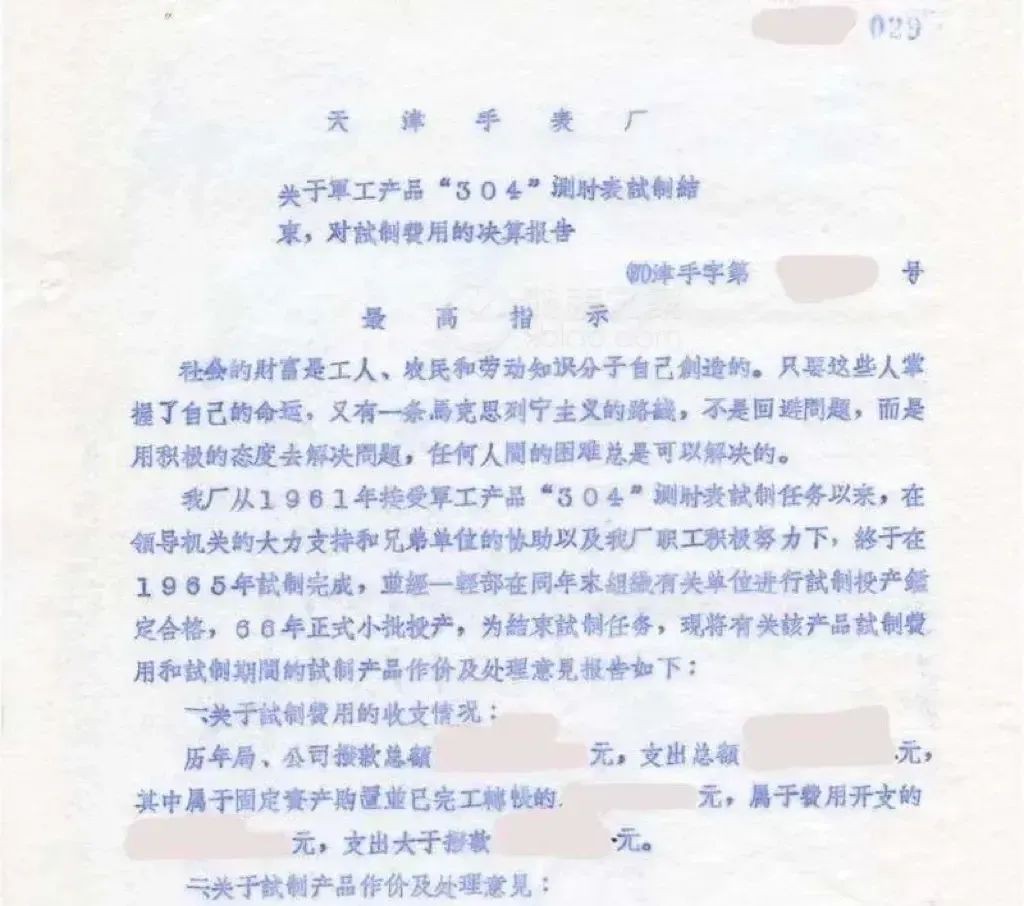 029
天津手表厂
关于軍工产品“304”测时表試制結
束，对試制費用的决算报告
津手字第 号
最高指示
社会的財富是工人、农民和劳动知识分子自己創造的。只要这些人掌
握了自己的命运，又有一条馬克思列宁主义的路綫，不是回避問題，而是
用积极的态度去解决問題，任何人間的困难总是可以解决的。
我厂从1961年接受軍工产品“304”测时表試制任务以来，在
領导机关的大力支持和兄弟单位的协助以及我厂职工积极努力下，終于在
1965年試制完成，並經一輕部在同年末組織有关单位进行試制投产鑑
定合格，66年正式小批投产，为結束試制任务，現将有关該产品試制費
用和試制期間的試制产品作价及处理意見报告如下：
一、关于試制費用的收支情况：
历年局、公司撥款总額 元，支出总額 元，
其中属于固定資产購置並已完工轉帳的 元，属于費用开支的
元，支出大于撥款 元。
二、关于試制产品作价及处理意見：